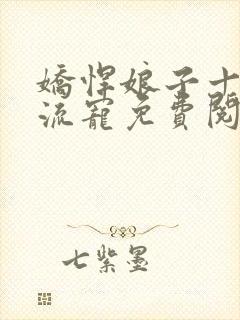 嬌悍娘子十
流寵免費閱
七紫墨